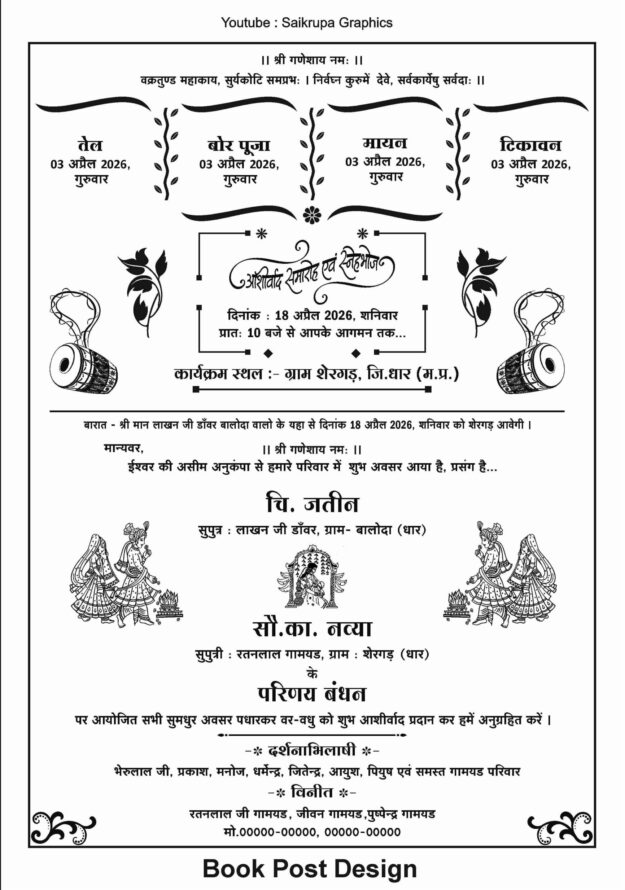 Youtube : Saikrupa Graphics
।। श्री गणेशाय नमः ।।
वक्रतुण्ड महाकाय, सुर्यकोटि समप्रभः । निर्वघ्न कुरुमें देवे, सर्वकार्येषु सर्वदाः ।।
तेल
03 अप्रैल 2026,
गुरुवार
बोर पूजा
03 अप्रैल 2026,
गुरुवार
मायन
03 अप्रैल 2026,
गुरुवार
टिकावन
03 अप्रैल 2026,
गुरुवार
आशीर्वाद समारोह एवं स्नेहभोज
दिनांक : 18 अप्रैल 2026, शनिवार
प्रातः 10 बजे से आपके आगमन तक...
कार्यक्रम स्थल :- ग्राम शेरगड़, जि.धार (म.प्र.)
बारात - श्री मान लाखन जी डाँवर बालोदा वालो के यहा से दिनांक 18 अप्रैल 2026, शनिवार को शेरगड़ आवेगी ।
मान्यवर,
।। श्री गणेशाय नमः ।।
ईश्वर की असीम अनुकंपा से हमारे परिवार में शुभ अवसर आया है, प्रसंग है...
चि. जतीन
सुपुत्र : लाखन जी डाँवर, ग्राम- बालोदा (धार)
सौ.का. नव्या
सुपुत्री : रतनलाल गामयड, ग्राम : शेरगड़ (धार)
के
परिणय बंधन
पर आयोजित सभी सुमधुर अवसर पधारकर वर-वधु को शुभ आशीर्वाद प्रदान कर हमें अनुग्रहित करें ।
-* दर्शनाभिलाषी *-
भेरुलाल जी, प्रकाश, मनोज, धर्मेन्द्र, जितेन्द्र, आयुश, पियुष एवं समस्त गामयड परिवार
-* विनीत *-
रतनलाल जी गामयड, जीवन गामयड,पुष्पेन्द्र गामयड
मो.00000-00000, 00000-00000
Book Post Design